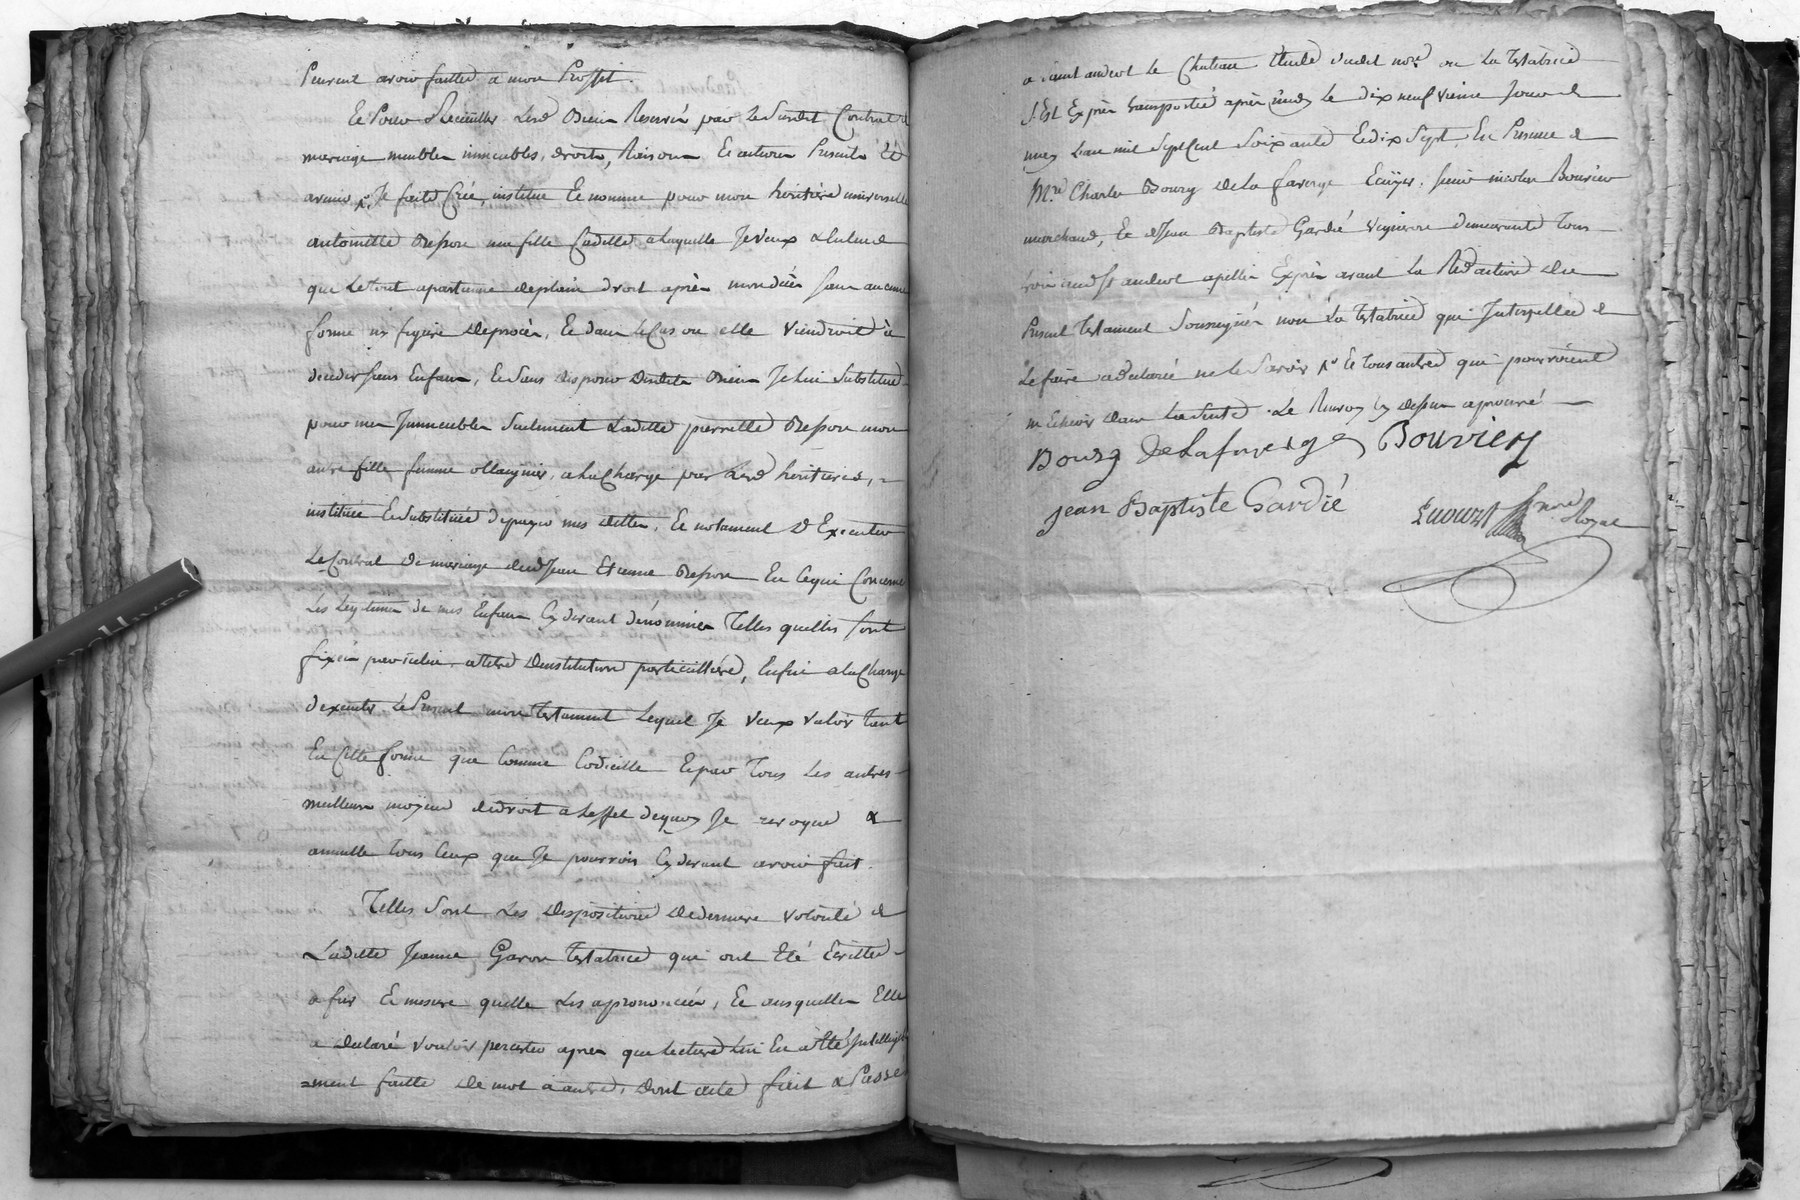 Peuvent avoir faittes a mon Proffit.
Et Pour Recueillir Lesd Biens Reservés par Le Susdit Contrat de
mariage meubles immeubles, droits, Raisons Et actions Presents Et
avenir, Je faite Crée, institue Et nomme pour mon héritière universelle
antoinette Besson ma fille Cadette a Laquelle Je veux & Entend
que Letout apartienne deplain droit après mon decès sans aucune
forme ni figure deprocès, Et dans LeCas ou elle viendroit à
deceder sans Enfans, Et Sans disposer Desdits Biens Je Lui Substitue
pour mes Immeubles Seulement Laditte pierrette Besson mon
autre fille femme ollagnier, alaCharge par Lesd héritieres,
instituée EtSubstituée depayer mes dettes, Et notament D'Executer
LeContrat De mariage dud Jean Etienne Besson En Cequi Concerne
Les Legitimes de mes Enfans Cy devant dénommés Telles quelles sont
fixées par icelui atitre D'institution particuillière, Enfin alaCharge
d'executer LePresent mon Testament Lequel Je veux valoir Tant
En Cette forme que Comme Codicille Et par Tous Les autres
meilleurs moÿens dedroit a Leffet dequoy Je revoque &
annulle tous Ceux que Je pourrois Cy devant avoir fait.
Telles Sont Les Dispositions Dederniere volonté de
Laditte Jeanne Garon Testatrice qui ont Eté Ecrittes
a fur Et mesure quelle Les aprononcées, Et ausquelles Elle
a declaré vouloir percister après que Lecture Lui En a Eté Intelligible
=ment faitte De mot a autre, Dont acte fait & Passé
a saint andeol le Chateau Etude dudit nore ou La Testatrice
S'Est Exprès transportée après midy Le dix neuf vieme Jour de
mars Lan mil SeptCent Soixante Et dix Sept, En Presence de
Mre Charles Bourg De La faverge Ecuÿer, sieur nicolas Bouvier
marchand, Et de Jean Baptiste Gardié vigneron demeurants tous
trois aud St andeol apellés Exprès avant La Redaction du
Present Testament Soussignés non La Testatrice qui Interpellée de
Le faire adeclaré ne le Savoir Et tous autres qui pourroient
m'Echoir dans La Suitte. Le Renvoy Cy dessus aprouvé
Bourg De Lafaverge Bouvier
jean Baptiste Gardié
nore Royal